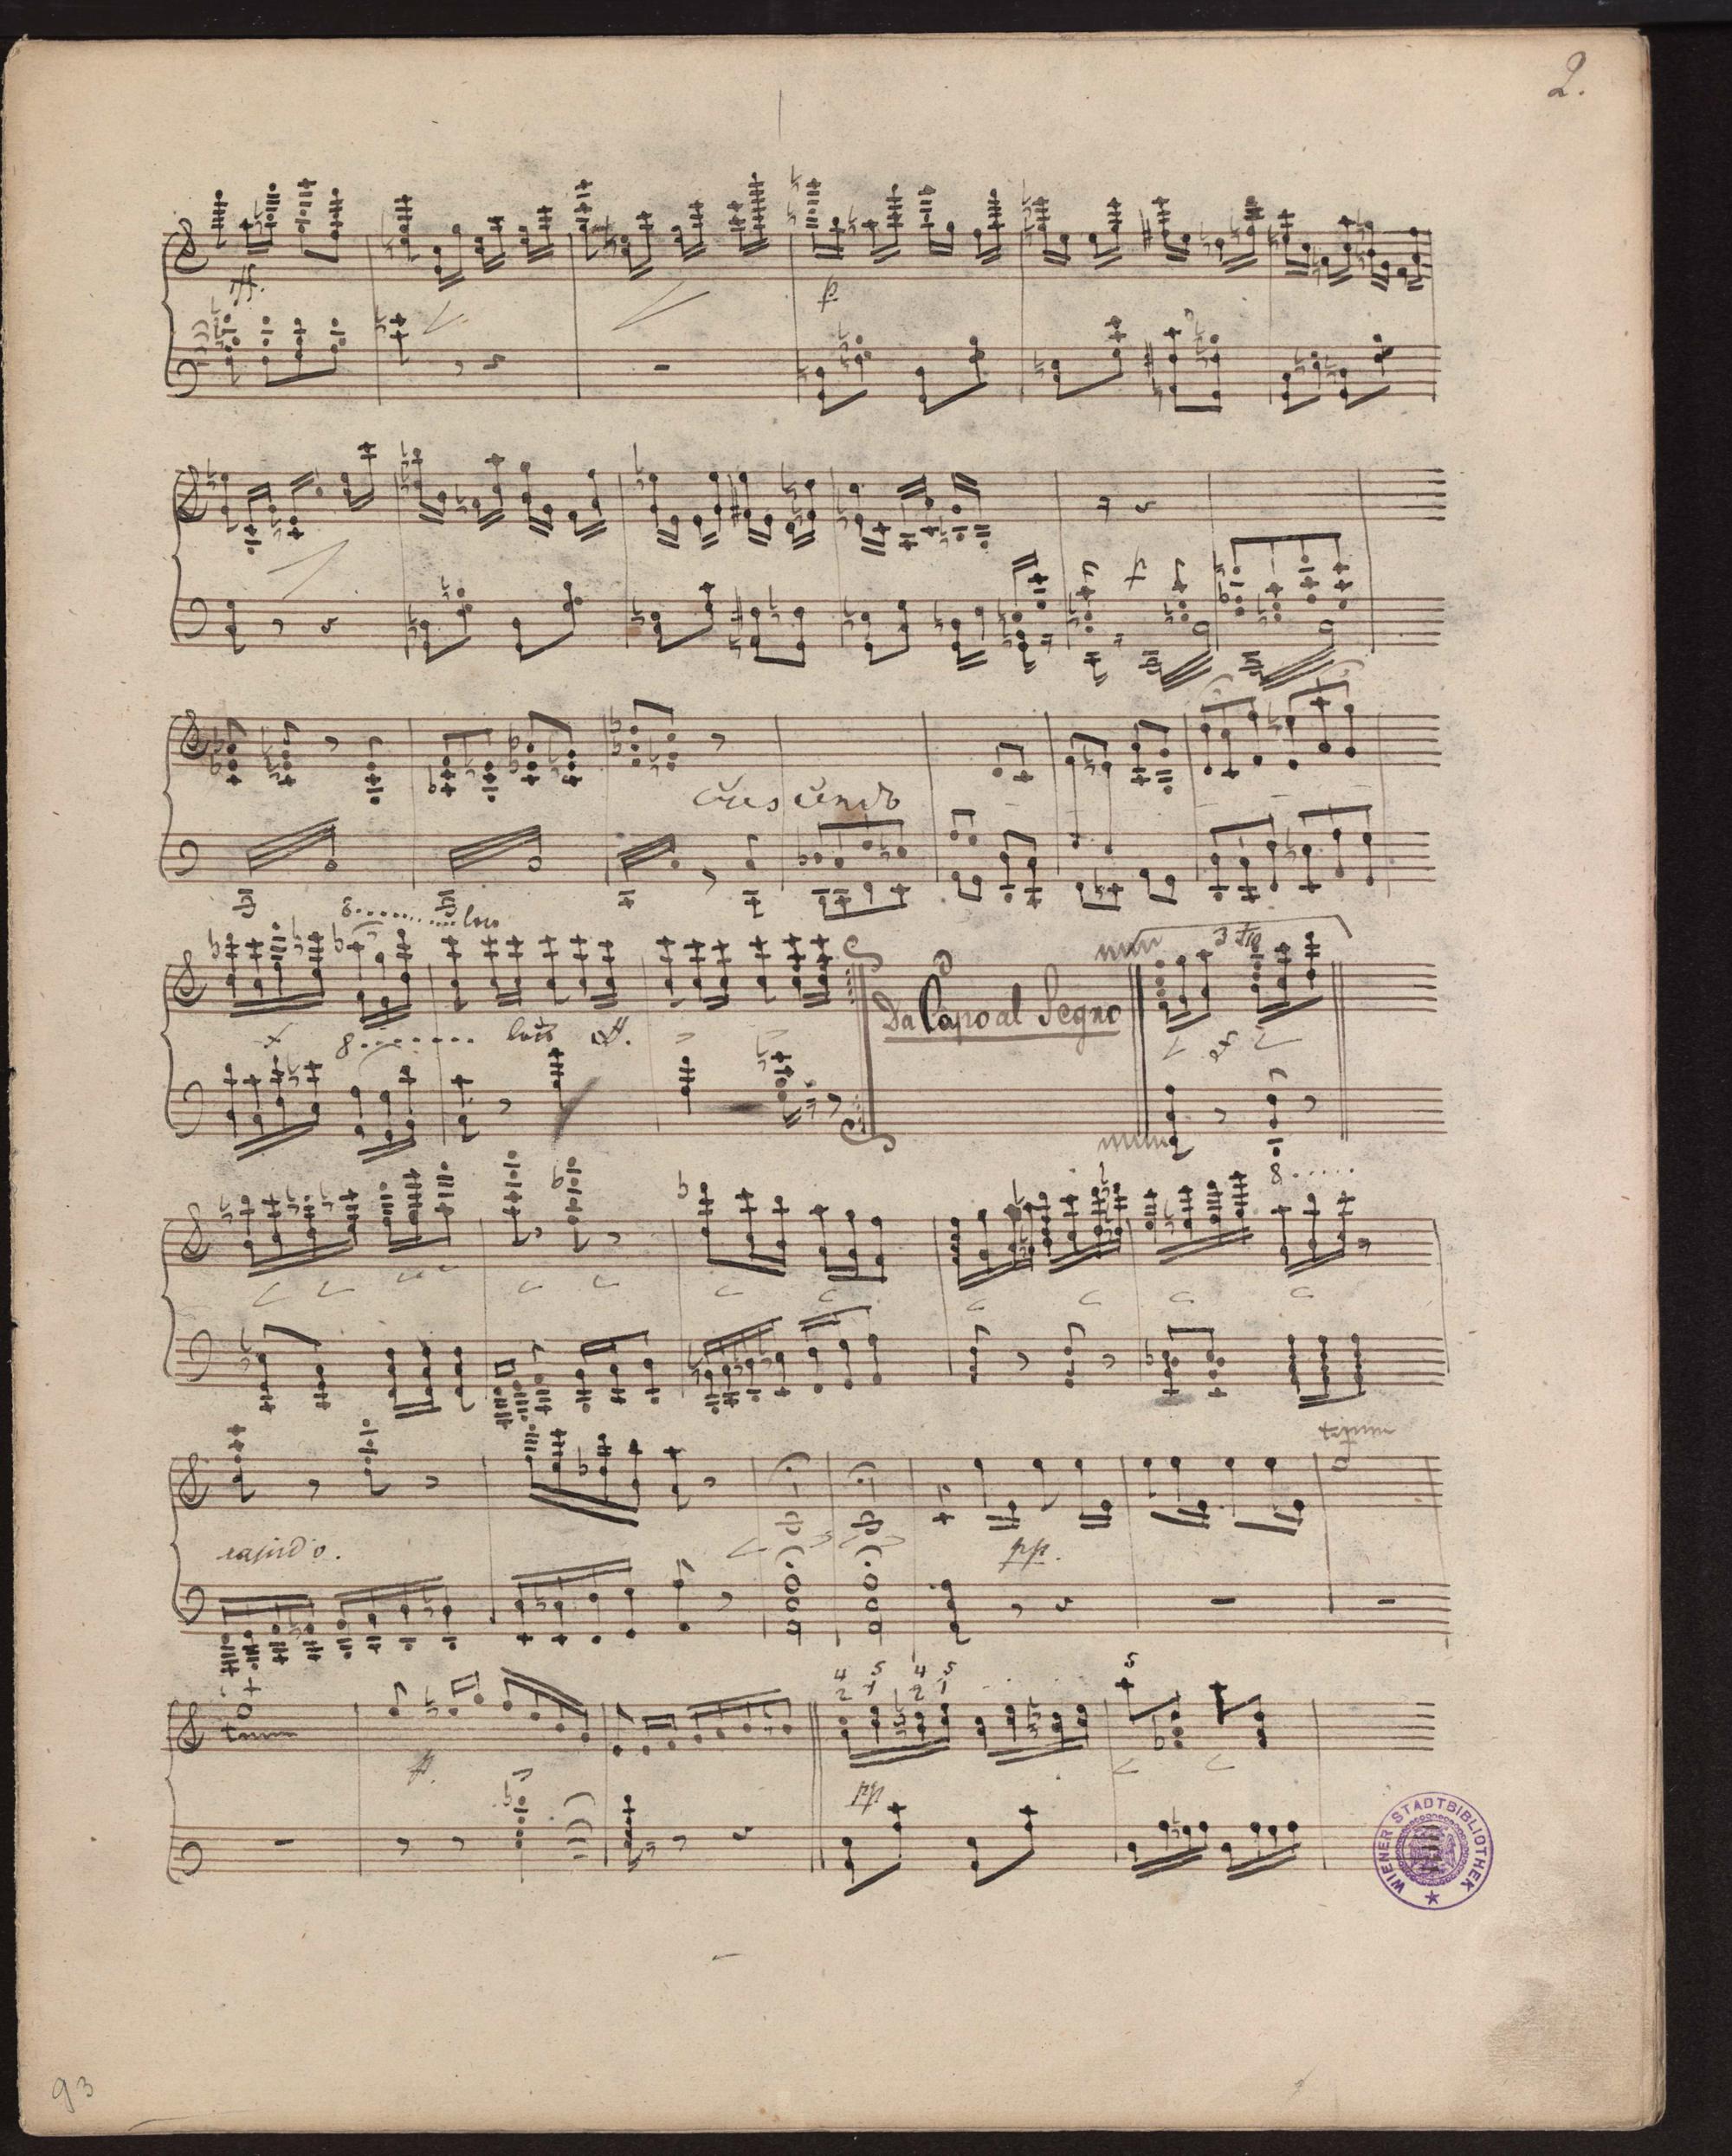 2.
ff.
p
f
crescendo
8........ loco
f 8........ loco ff.
Da Capo al Segno
3tio
8.....
rapido.
pp.
p.
4 5 4 5
2 1 2 1
5
pp
WIENER STADTBIBLIOTHEK
93